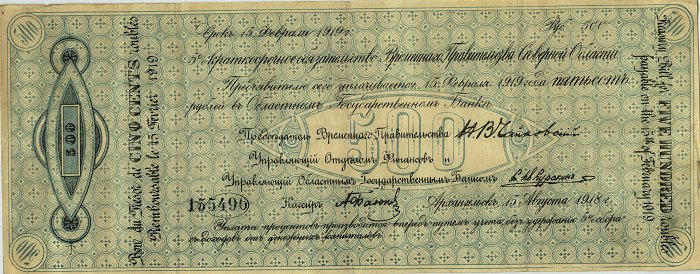 500
500
Срокъ 15 Февраля 1919 г.
Руб. 500
5% Краткосрочное обязательство Временнаго Правительства Сѣверной Области
Предъявителю сего уплачивается 15 Февраля 1919 года пятьсотъ
рублей въ Областномъ Государственномъ Банкѣ.
500
Предсѣдатель Временнаго Правительства Н. В. Чайковскій
Управляющій Отдѣломъ Финансовъ и
Управляющій Областнымъ Государственнымъ Банкомъ
155490
Кассиръ
Архангельскъ, 15 Августа 1918 г.
Уплата процентовъ производится впередъ путемъ учета, безъ удержанія 5% сбора
съ доходовъ отъ денежныхъ капиталовъ.
Bon du Trésor de CINQ CENTS roubles
Remboursable le 15 Février 1919
500
Treasury Bill for FIVE HUNDRED roubles
payable on the 15th of February 1919
500
500